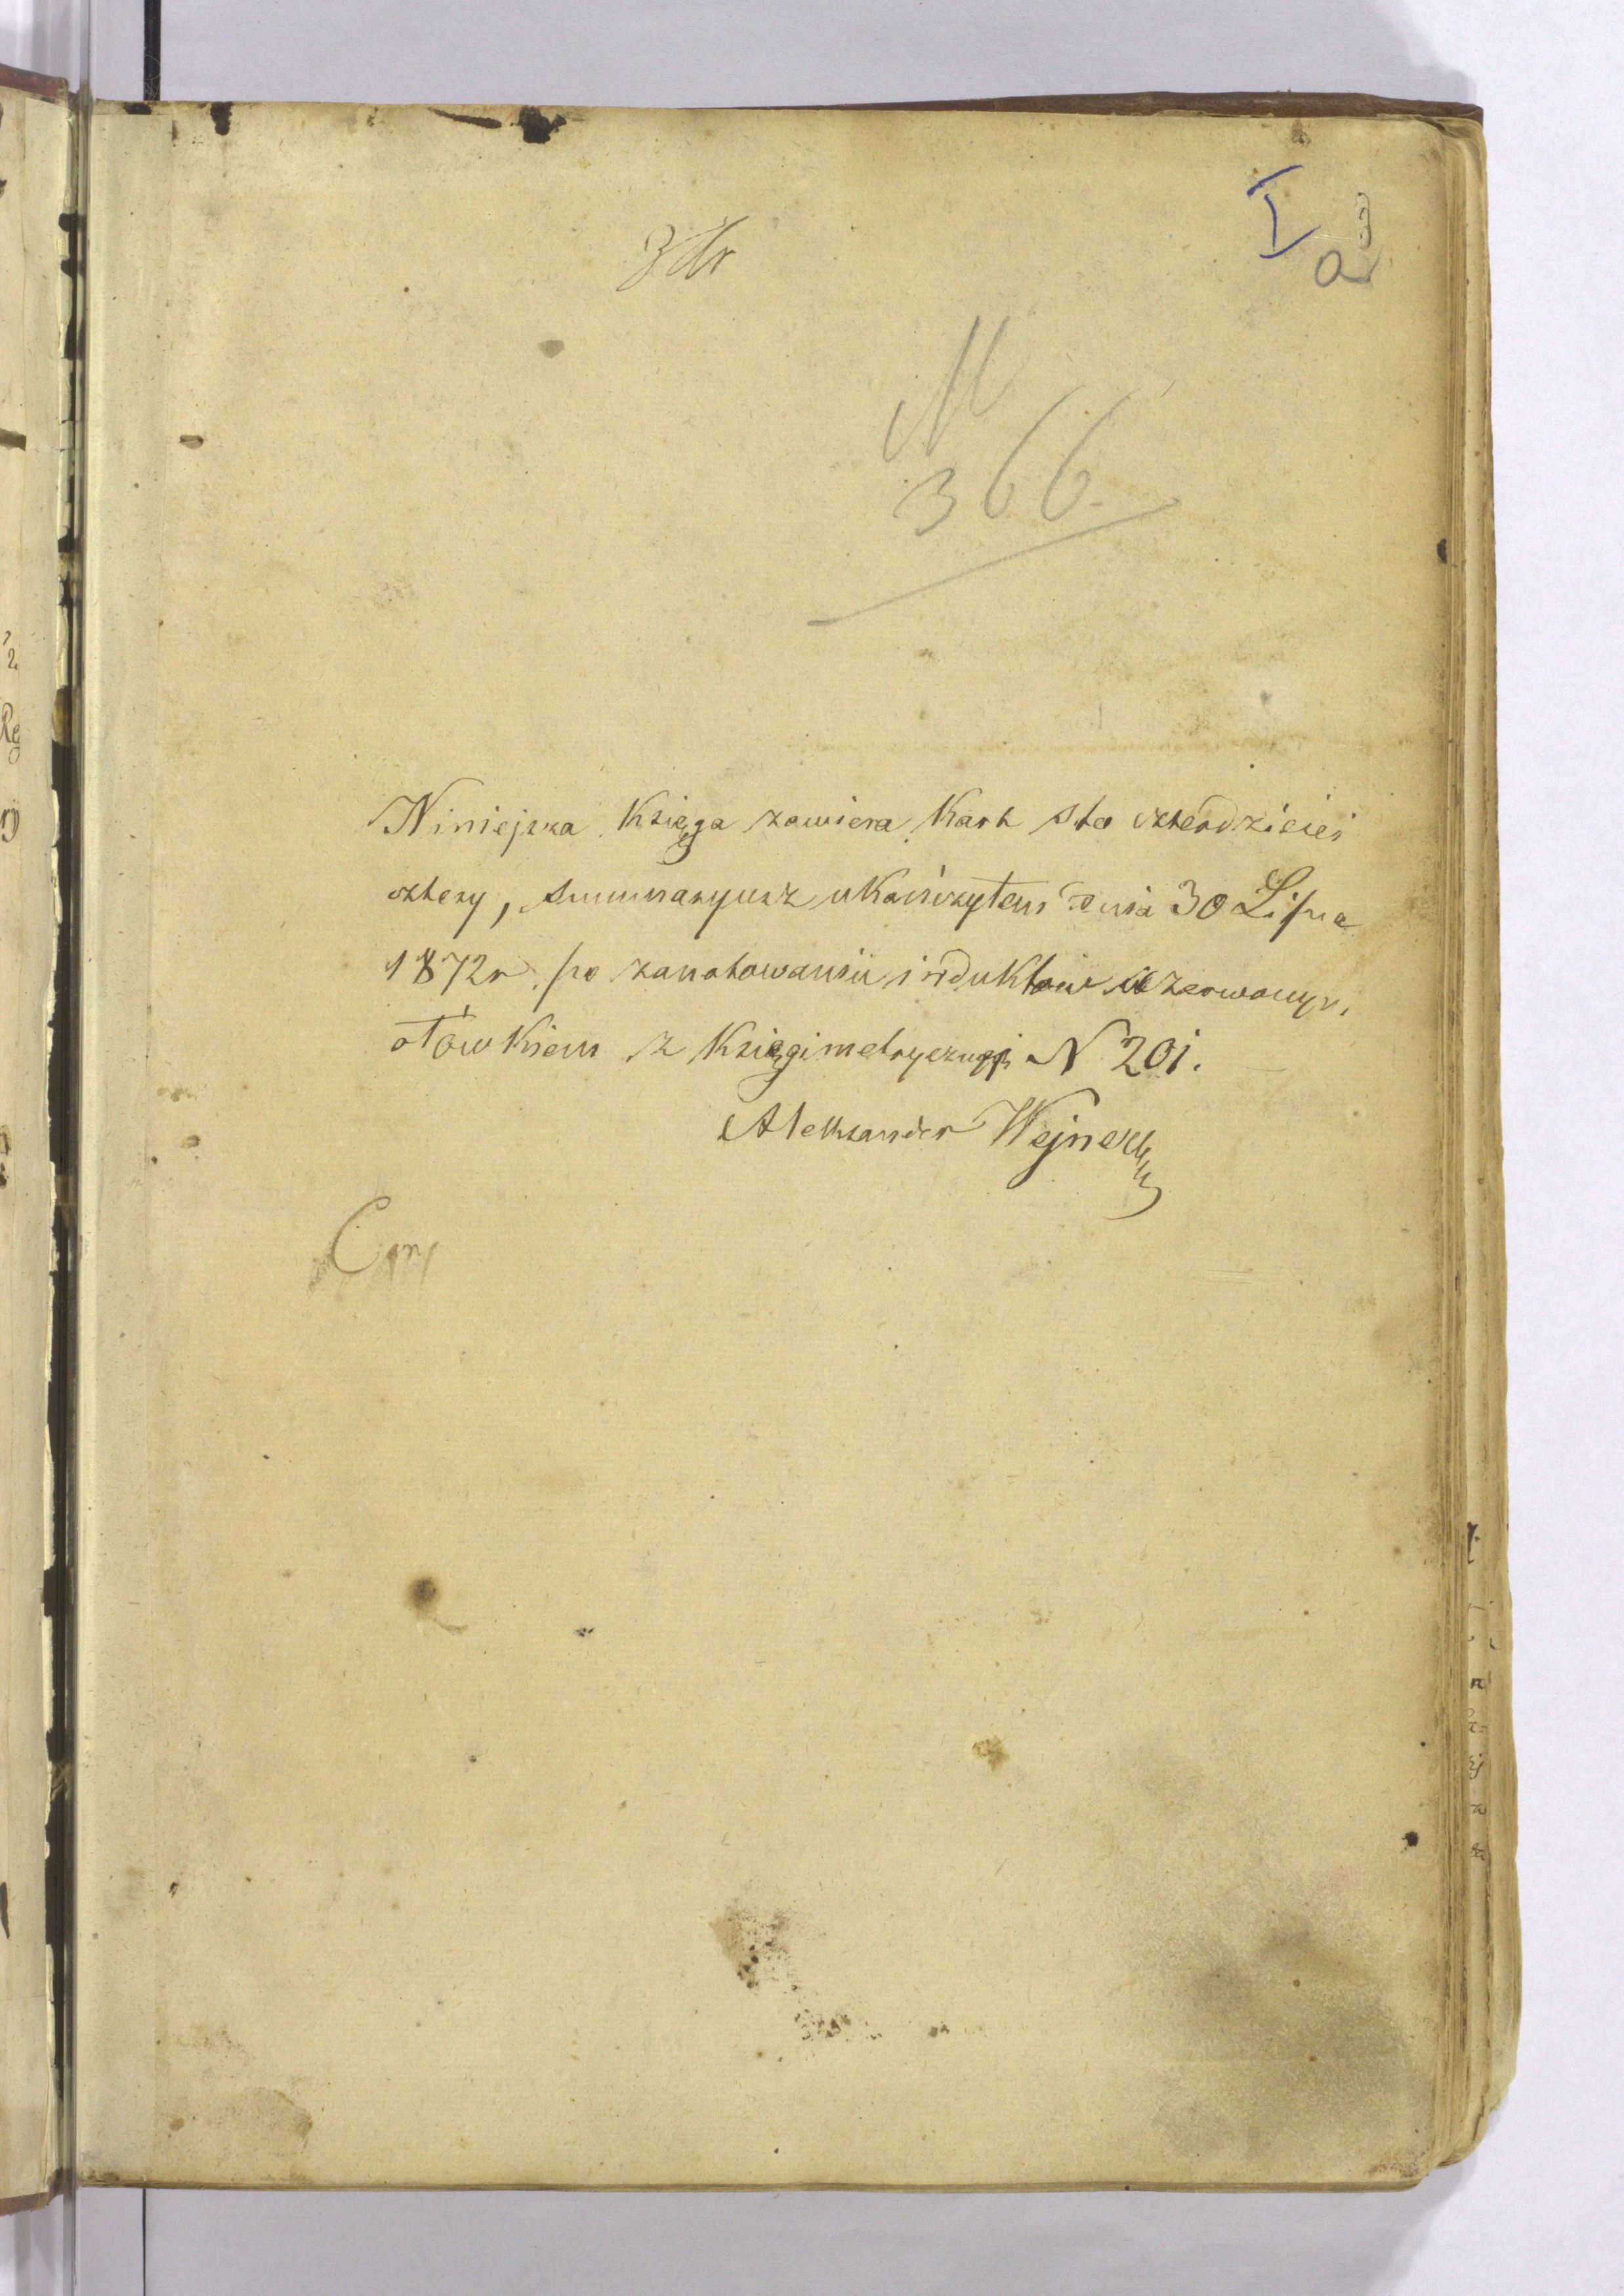 I
a
M
366.
Niniejsza Księga zawiera Kart sto czterdzieści
cztery, Summaryusz ukończyłem dnia 30 Lipca
1872 r. po zanotowaniu induktów czerwonym
ołówkiem z Księgi metrycznej N 201.
Aleksander Wejnert